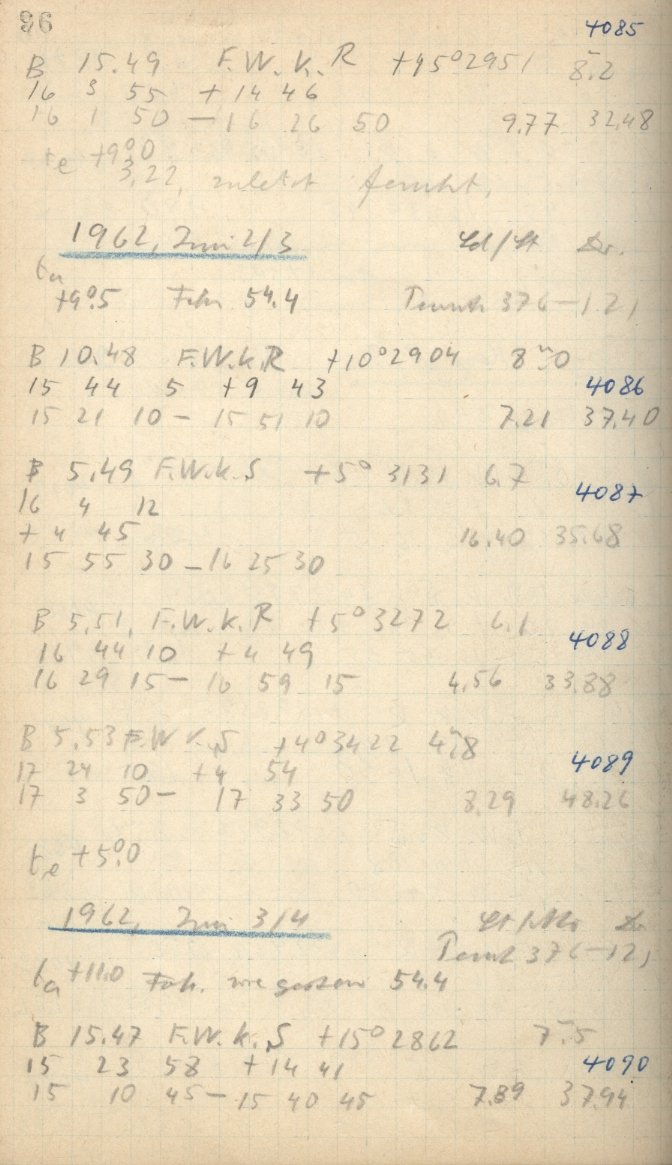 96
4085
B 15.49 F.W.K.R +15°2951 8.2
16 3 55 +14 46
16 1 50 – 16 26 50 9.77 32.48
te +9°.0
3.22, zuletzt feucht,
1962, Juni 2/3 Dr.
ta
+9°.5 Fok. 54.4 376–121
B 10.48 F.W.K.R +10°2904 8.0
15 44 5 +9 43 4086
15 21 10 – 15 51 10 7.21 37.40
B 5.49 F.W.K.S +5° 3131 6.7
4087
16 4 12
+4 45 16.40 35.68
15 55 30 – 16 25 30
B 5.51, F.W.K.R +5°3272 6.1
4088
16 44 10 +4 49
16 29 15 – 16 59 15 4.56 33.88
B 5.53 F.W.K.S +4°3422 4.8
4089
17 24 10 +4 54
17 3 50 – 17 33 50 8.29 48.26
te +5°.0
1962, Juni 3/4
376–121
ta +11.0 Fok. wie gestern 54.4
B 15.47 F.W.K.S +15°2862 7.5
15 23 58 +14 41 4090
15 10 45 – 15 40 45 7.89 37.94